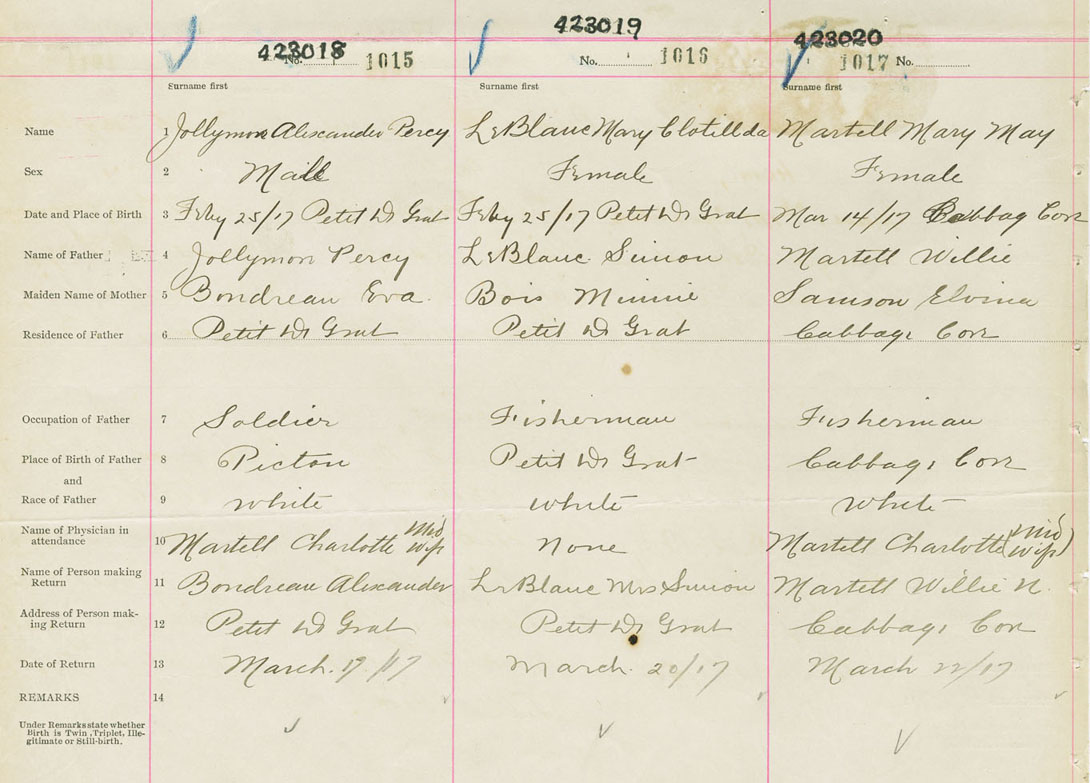 423018 423019 423020
No. 1015 No. 1016 1017 No.
Surname first Surname first Surname first
Name 1 Jollymore Alexander Percy LeBlanc Mary Clotillda Martell Mary May
Sex 2 Male Female Female
Date and Place of Birth 3 Feby 25/17 Petit De Grat Feby 25/17 Petit De Grat Mar 14/17 Cabbag Cove
Name of Father 4 Jollymore Percy LeBlanc Simon Martell Willie
Maiden Name of Mother 5 Boudreau Eva. Bois Minnie Samson Elvina
Residence of Father 6 Petit De Grat Petit De Grat Cabbage Cove
Occupation of Father 7 Soldier Fisherman Fisherman
Place of Birth of Father 8 Pictou Petit De Grat Cabbage Cove
and
Race of Father 9 white white White
Name of Physician in
attendance 10 Martell Charlotte Mid wife None Martell Charlotte (Mid wife)
Name of Person making
Return 11 Boudreau Alexander LeBlanc Mrs Simon Martell Willie N.
Address of Person mak-
ing Return 12 Petit De Grat Petit De Grat Cabbage Cove
Date of Return 13 March. 19/17 March. 20/17 March 22/17
REMARKS 14
Under Remarks state whether
Birth is Twin, Triplet, Ille-
gitimate or Still-birth.